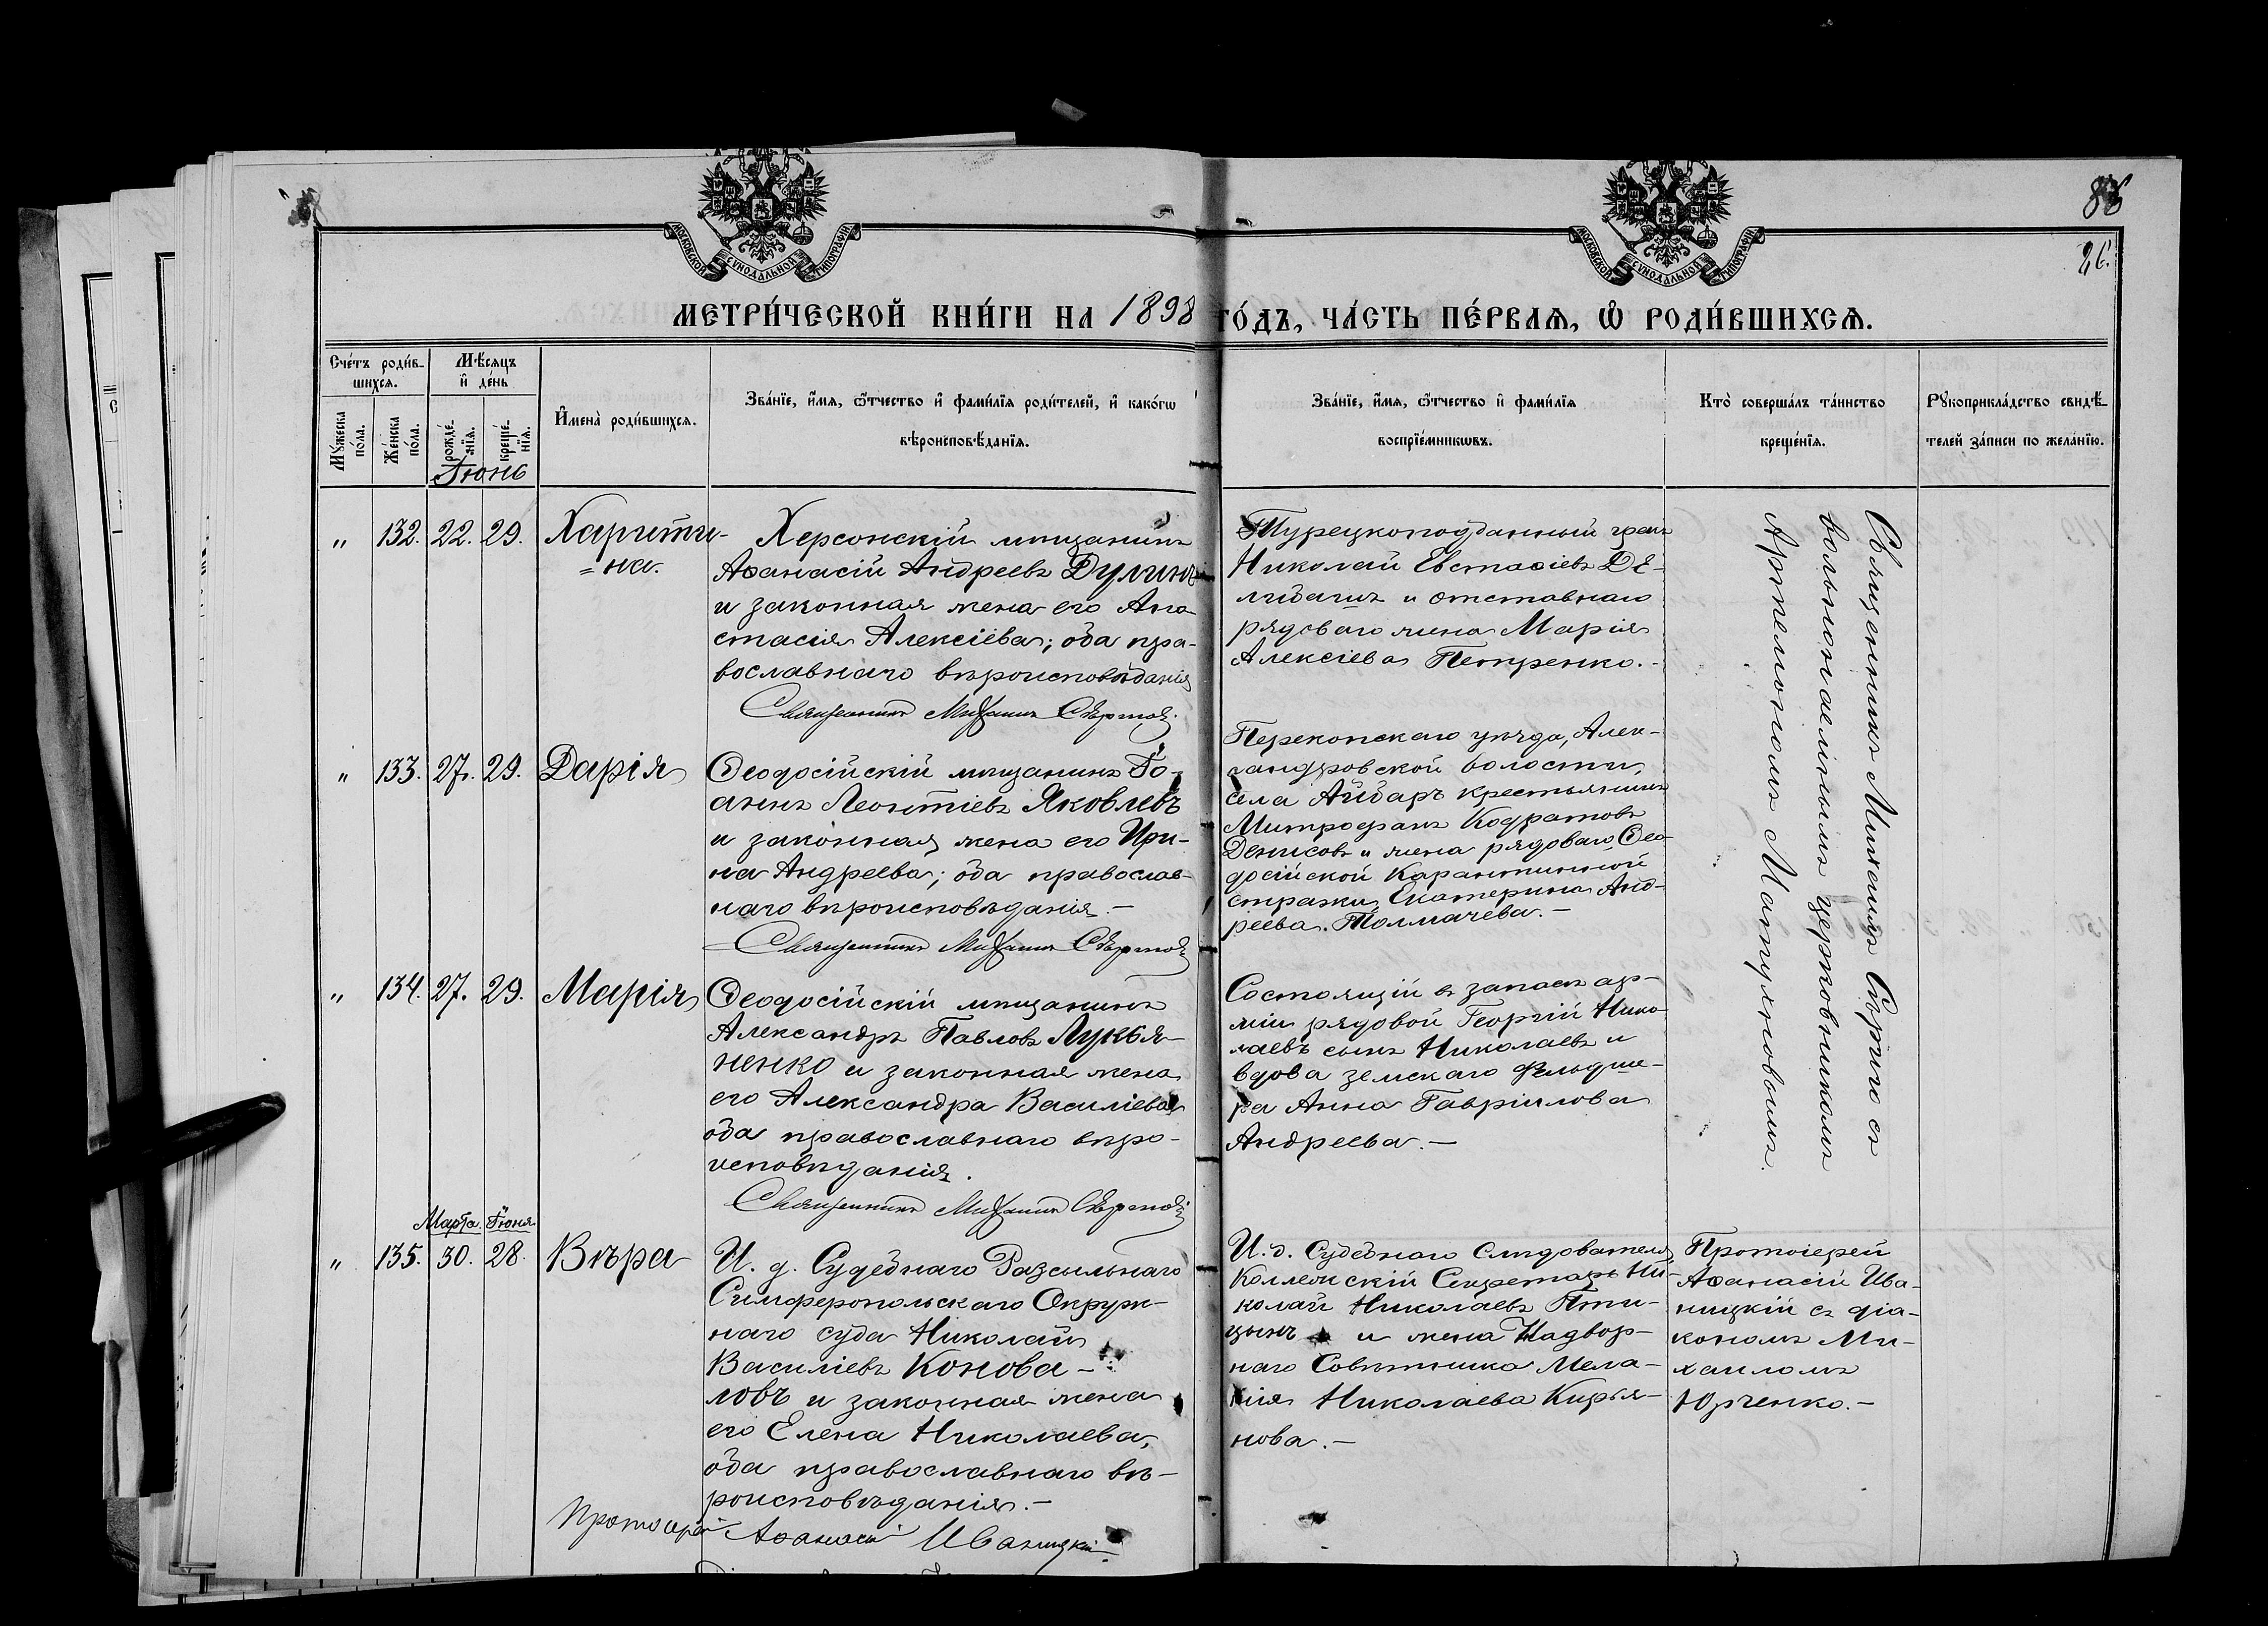 86
26.
МОСКОВСКОЙ СѴНОДАЛЬНОЙ ТИПОГРАФІИ
МОСКОВСКОЙ СѴНОДАЛЬНОЙ ТИПОГРАФІИ
МЕТРИ́ЧЕСКОЙ КНИ́ГИ НА 1898 ГО́ДЪ, ЧА́СТЬ ПЕ́РВАѦ, Ѽ РОДИ́ВШИХСѦ.
Сче́тъ роди́в-
шихсѧ.
Мꙋ́жеска
по́ла.
Же́нска
по́ла.
Мѣ́сѧцъ
и҆ де́нь
рожде́-
нїѧ.
креще́-
нїѧ.
Іюнь
И҆мена̀ роди́вшихсѧ.
Зва́нїе, и҆́мѧ, ѻ҆́тчество и҆ фами́лїѧ роди́телей, и҆ како́гѡ
вѣроисповѣ́данїѧ.
Зва́нїе, и҆́мѧ, ѻ҆́тчество и҆ фами́лїѧ
воспрїе́мникѡвъ.
Кто̀ соверша́лъ та́инство
креще́нїѧ.
Рꙋкоприкла́дство свидѣ́-
телей за́писи по жела́нїю.
" 132. 22. 29. Харити-
=на.
Херсонскій мѣщанинъ
Аѳанасій Андреевъ Дулинъ
и законная жена его Ана
стасія Алексіева; оба пра-
вославнаго вѣроисповѣданія
Священникъ Михаилъ Сѣртой
Турецкоподданный грекъ
Николай Евстаѳіевъ ДЕ-
либашъ и отставнаго
рядоваго жена Марія
Алексіева Петренко.-
Священникъ Михаилъ Сѣртой съ
вольнонаемнымъ церковникомъ
Артемономъ Матушковымъ.
" 133. 27. 29. Дарія
Ѳеодосійскій мѣщанинъ Іо-
аннъ Леонтіевъ Яковлевъ
и законная жена его Ири-
на Андреева; оба православ-
наго вѣроисповѣданія.-
Священникъ Михаилъ Сѣртой
Перекопскаго уѣзда, Алек-
сандровской волости,
села Айбаръ крестьянинъ
Митрофанъ Кодратовъ
Денисовъ и жена рядоваго Ѳео-
досійской Карантинной
стражи Екатерина Анд-
реева Толмачева.-
" 134. 27. 29. Марія
Ѳеодосійскій мѣщанинъ
Александръ Павловъ Лукья-
ненко и законная жена
его Александра Василіева
оба православнаго вѣро-
исповѣданія.
Священникъ Михаилъ Сѣртой
Состоящій въ запасѣ ар-
міи рядовой Георгій Нико-
лаевъ сынъ Николаевъ и
вдова земскаго фельдше-
ра Анна Гавріилова
Андреева.-
Марта. Іюня
" 135. 30. 28. Вѣра
И. д. Судебнаго Разсыльнаго
Симферопольскаго Окруж-
наго суда Николай
Василіевъ Конова-
ловъ и законная жена
его Елена Николаева,
оба православнаго вѣ-
роисповѣданія.-
Протоіерей Аѳанасій Иваницкій
И. д. Судебнаго Слѣдователя
Коллежскій Секретарь Ни-
колай Николаевъ Пти-
цынъ и жена Надвор-
наго Совѣтника Мела-
нія Николаева Кирья-
нова.-
Протоіерей
Аѳанасій Ива-
ницкій съ діа-
кономъ Ми-
хаиломъ
Юрченко.-